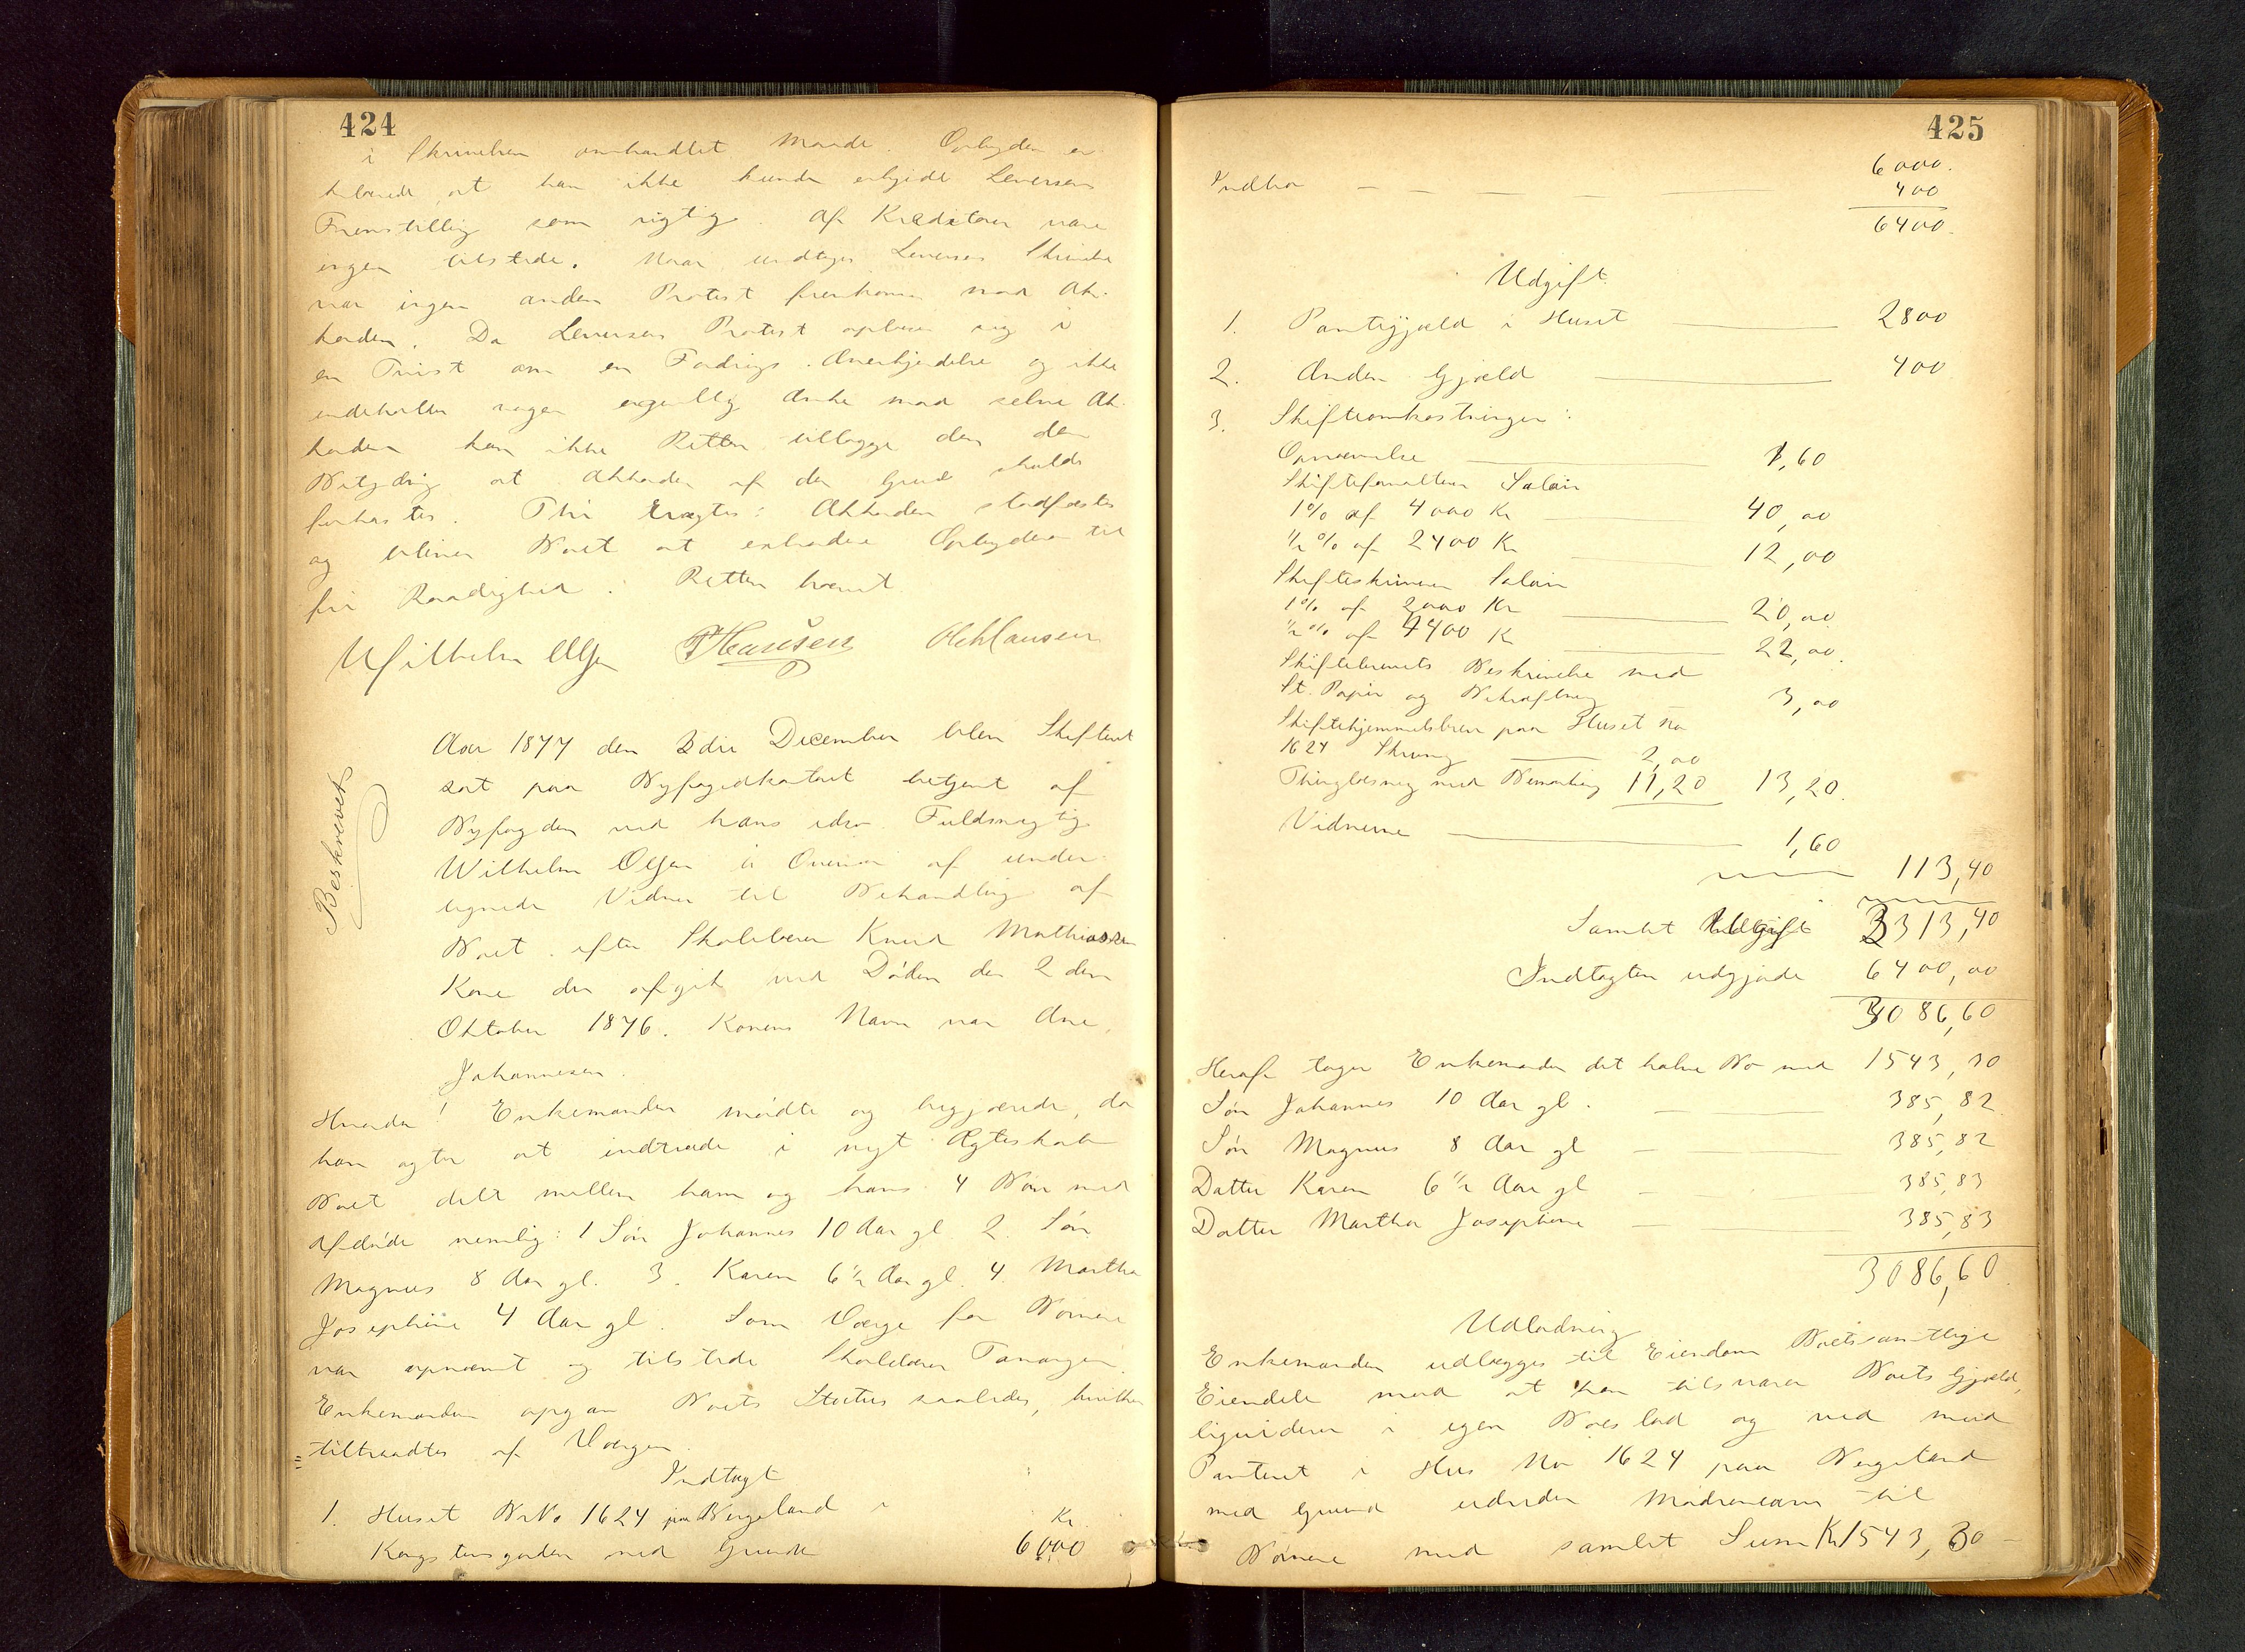 424
i Skrivelsen omhandlet Maade. Opbyderen er-
klærede, at han ikke kunde erkjende Leversens
Fremstilling som rigtig. Af Kreditorer vare
ingen tilstede. Naar undtages Leversens Skrivelse
var ingen anden Protest fremkommen mod Ak-
korden. Da Leversens Protest opløser sig i
en Tvist om en Fordrings Anerkjendelse og ikke
indeholder nogen egentlig Anke mod selve Ak-
korden kan ikke Retten tillægge den den
Betydning at Akkorden af den Grund skulde
forkastes. Thi eragtes: Akkorden stadfæstes
og bliver Boet at extradere Opbyderen til
fri Raadighed. Retten hævet
Wilhelm Olsen THansen OChClausen
Beskrevet
Aar 1877 den 3die December blev Skifteret
sat paa Byfogedkontoret betjent af
Byfogden ved hans edsv. Fuldmægtig
Wilhelm Olsen i Overvær af under-
tegnede Vidner til Behandling af
Boet efter Skolelærer Knud Mathiassens
Kone der afgik ved Døden den 2den
Oktober 1876. Konens Navn var Ane
Johannesen.
Hvorda! Enkemanden mødte og begjærede, da
han agter at indtræde i nyt Ægteskab
Boet delt mellem ham og hans 4 Børn med
Afdøde nemlig: 1 Søn Johannes 10 Aar gl 2. Søn
Magnus 8 Aar gl. 3. Karen 6½ Aar gl. 4. Martha
Josephine 4 Aar gl. Som Værge for Børnene
var opnævnt og tilstede Skolelærer Tananger.
Enkemanden opgav Boets Status saaledes, hvilken
tiltraadtes af Værgen.
Indtægt
1. Huset BNo 1624 paa Bergeland i
Kr.
Kongstensgaden med Grund 6000
425
Indbo 6000.
400
6400.
Udgift
1. Pantegjæld i Huset 2800
2. Anden Gjæld 400
3. Skifteomkostninger:
Opnævnelse 1,60
Skifteforvalteren Salær
1% af 4000 Kr 40,00
½% af 2400 Kr 12,00
Skifteskriveren Salær
1% af 2000 Kr 20,00
½% af 4400 Kr 22,00.
Skiftebrevets Beskrivelse med
St. Papir og Bekræftning 3,00
Skiftehjemmelsbrev paa Huset No
1624 Skrivning 2,00
Thinglæsning med Bemærkning 11,20 13,20.
Vidnerne 1,60
113,40
Samlet Udgift 3313,40
Indtægten udgjorde 6400,00
3086,60
Heraf tager Enkemanden det halve Bo med 1543,30
Søn Johannes 10 Aar gl. 385,82
Søn Magnus 8 Aar gl 385,82
Datter Karen 6½ Aar gl 385,83
Datter Martha Josephine 385,83
3086,60.
Udlodning
Enkemanden udlægges til Eiendom Boets samtlige
Eiendele mod at han tilsvarer Boets Gjæld,
liquiderer i egen Boeslod og ved mod
Panteret i Hus No 1624 paa Bergeland
med Grund udreder Mødrenearv til
Børnene med samlet Sum Kr 1543,30 -